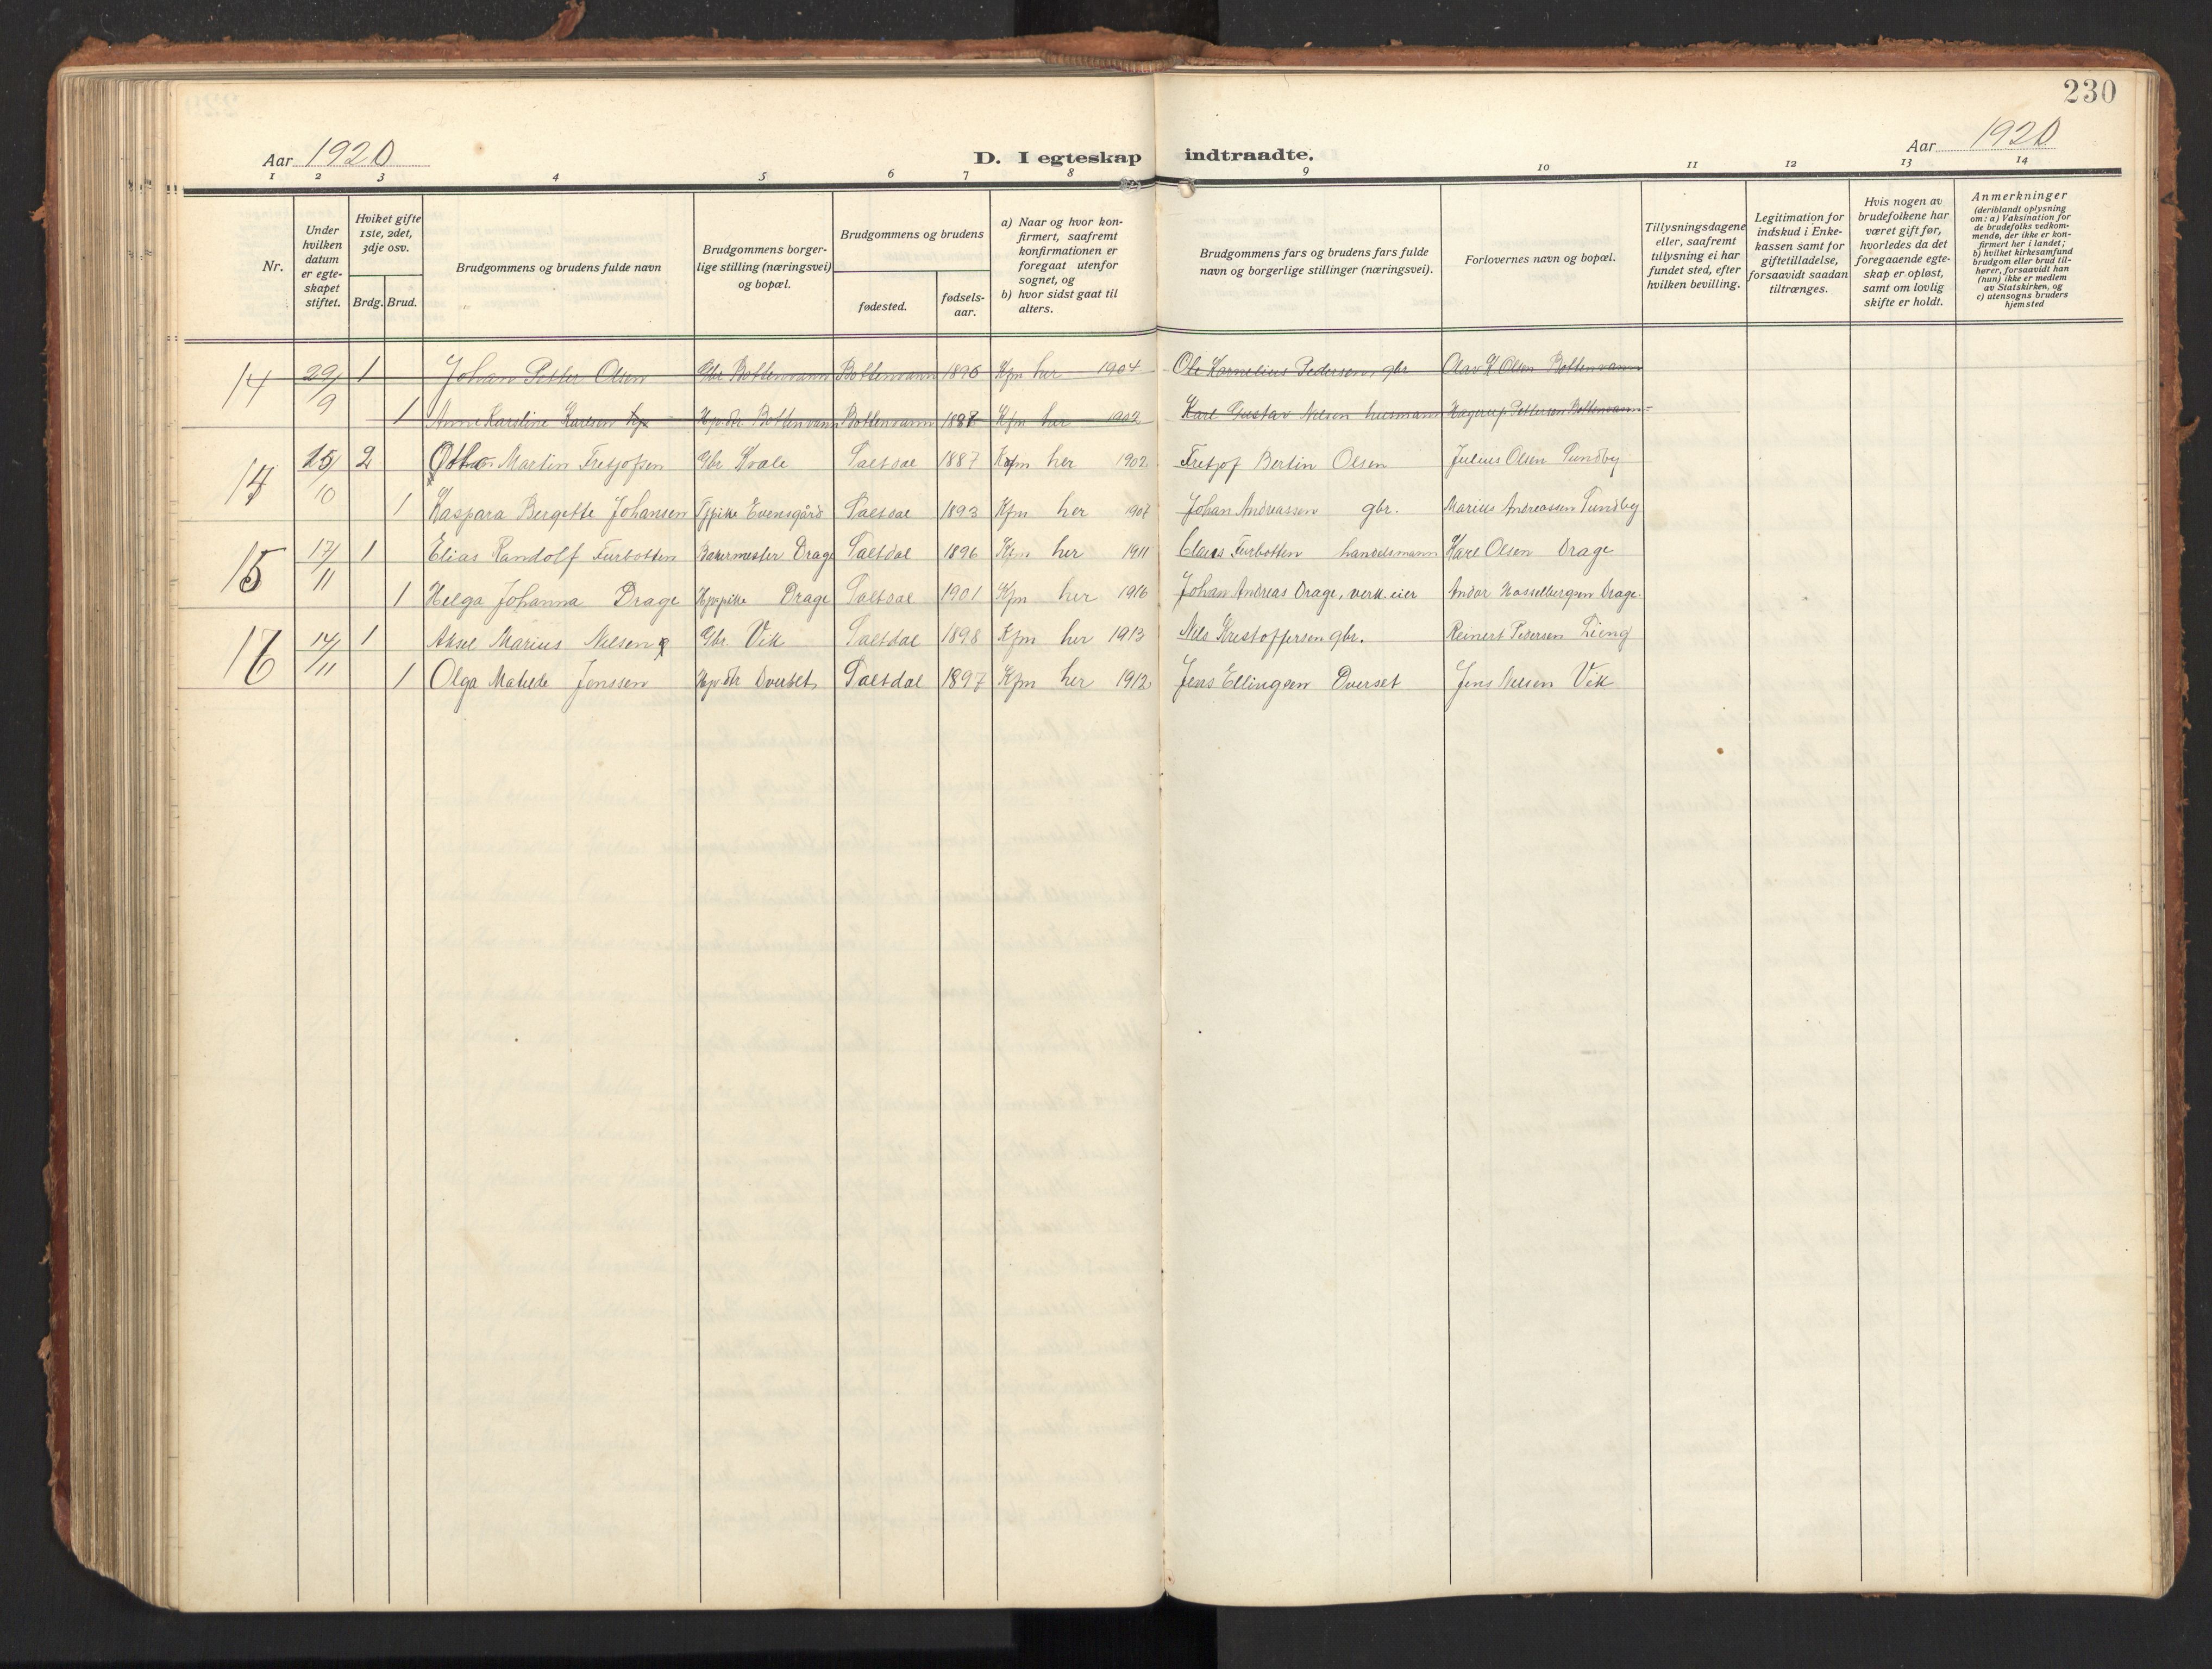 230
Aar 1920
D. I egteskap indtraadte.
Aar 1920
1 2 3 4 5 6 7 8 9 10 11 12 13 14
Nr.
Under hvilken datum er egteskapet stiftet.
Hviket gifte 1ste, 2det, 3dje osv.
Brdg. Brud.
Brudgommens og brudens fulde navn
Brudgommens borgerlige stilling (næringsvei) og bopæl.
Brudgommens og brudens
fødested.
fødselsaar.
a) Naar og hvor konfirmert, saafremt konfirmationen er foregaat utenfor sognet, og
b) hvor sidst gaat til alters.
Brudgommens fars og brudens fars fulde navn og borgerlige stillinger (næringsvei).
Forlovernes navn og bopæl.
Tillysningsdagene eller, saafremt tillysning ei har fundet sted, efter hvilken bevilling.
Legitimation for indskud i Enkekassen samt for giftetilladelse, forsaavidt saadan tiltrænges.
Hvis nogen av brudefolkene har været gift før, hvorledes da det foregaaende egteskap er opløst, samt om lovlig skifte er holdt.
Anmerkninger (deriblandt oplysning om: a) Vaksination for de brudefolks vedkommende, der ikke er konfirmert her i landet; b) hvilket kirkesamfund brudgom eller brud tilhører, forsaavidt han (hun) ikke er medlem av Statskirken, og c) utensogns bruders hjemsted
14 29/9 1 Johan Petter Olsen Gbr Bottenvann Bottenvann 1890 Kfm her 1904 Ole Kornelius Pedersen, gbr Olav K Olsen Bottenvann
1 Anne Karoline Karlsen Hp.dtr Bottenvann Bottenvann 1888 Kfm her 1902 Karl Gustav Nilsen husmann Hagerup Pettersen Bottenvann
14 15/10 2 Otto Martin Fretjofsen Gbr. Kvale Saltdal 1887 Kfm her 1902 Fretjof Bertin Olsen Julius Olsen Sundby
1 Kaspara Bergette Johansen Tjpike Evensgård Saltdal 1893 Kfm her 1907 Johan Andreassen gbr. Marius Andreassen Sundby
15 17/11 1 Elias Randolf Furbotten Bakermester Drage Saltdal 1896 Kfm her 1911 Claus Furbotten handelsmann Karl Olsen Drage
1 Helga Johanna Drage Hjpike Drage Saltdal 1901 Kfm her 1916 Johan Andreas Drage, verk.eier Andor Hasselbergsen Drage.
16 14/11 1 Aksel Marius Nilsen Gbr. Vik Saltdal 1898 Kfm her 1913 Nils Kristoffersen gbr. Reinert Pedersen Lieng
1 Olga Matilde Jenssen Hp.dtr Överset Saltdal 1897 Kfm her 1912 Jens Ellingsen Överset Jens Nilsen Vik